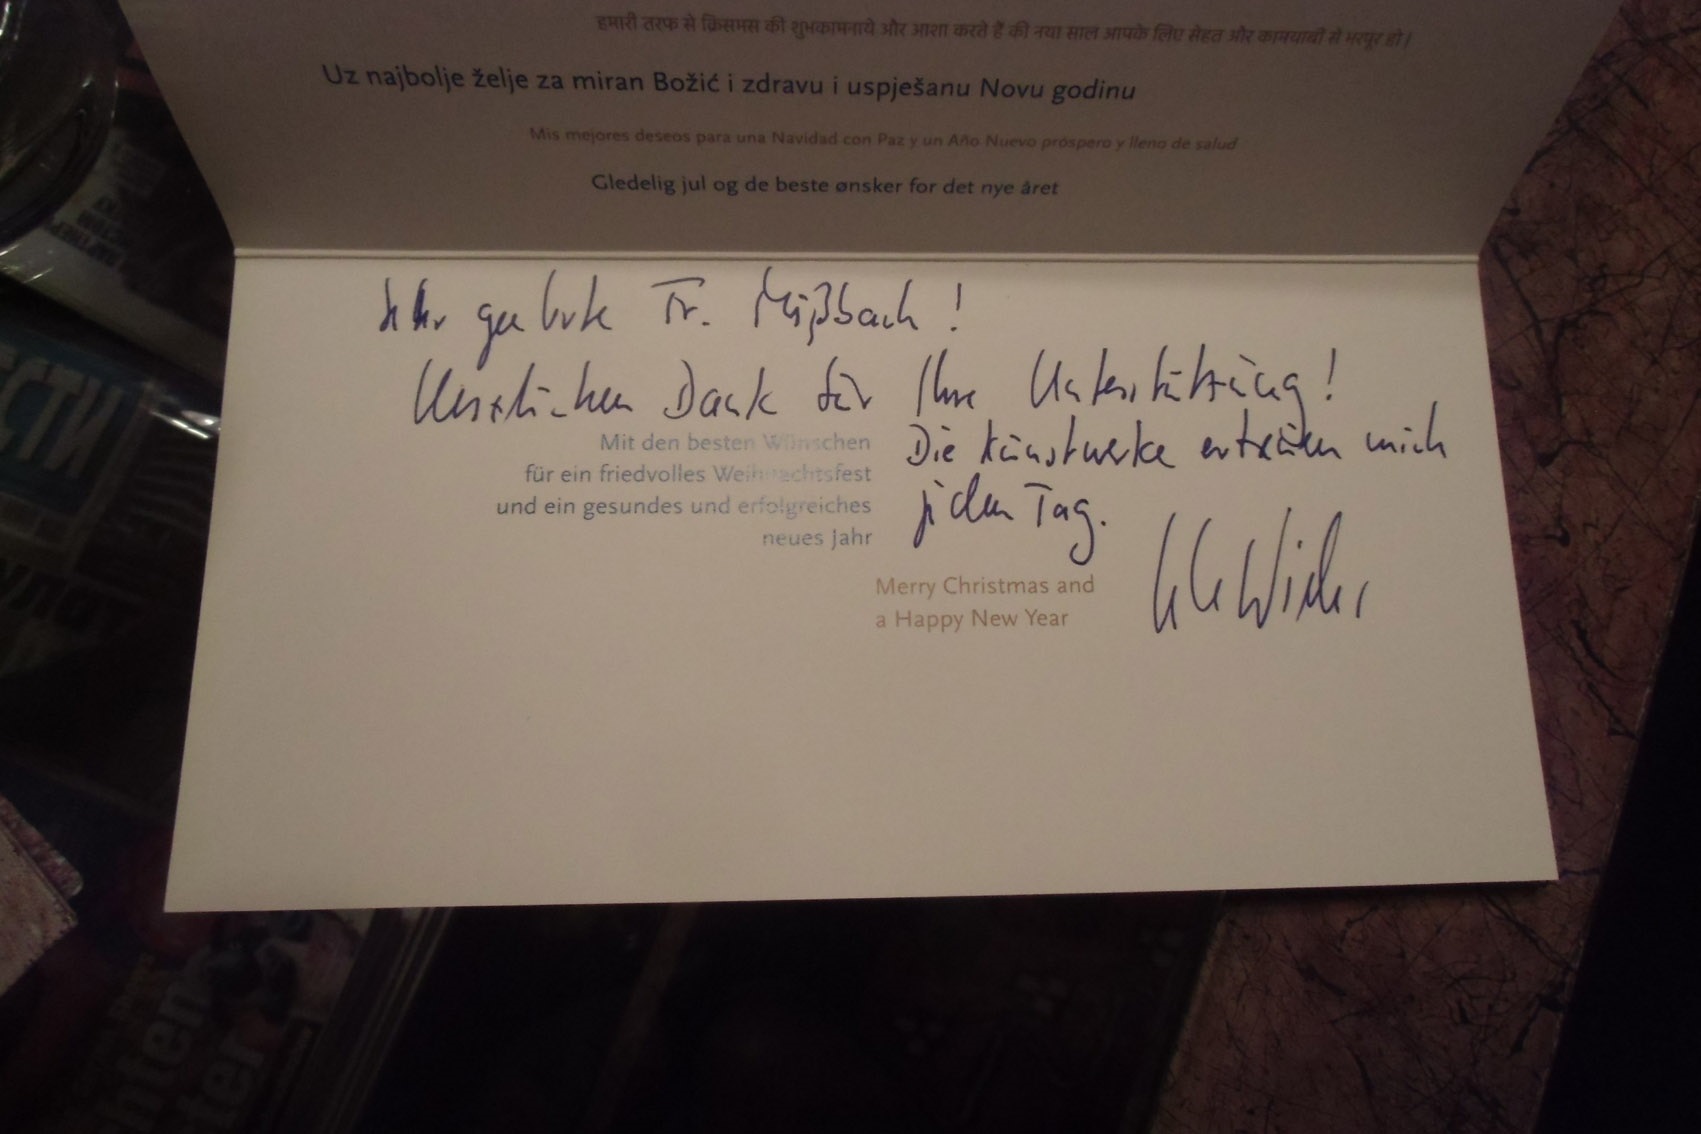 हमारी तरफ से क्रिसमस की शुभकामनाये और आशा करते हैं की नया साल आपके लिए सेहत और कामयाबी से भरपूर हो।
Uz najbolje želje za miran Božić i zdravu i uspješanu Novu godinu
Mis mejores deseos para una Navidad con Paz y un Año Nuevo próspero y lleno de salud
Gledelig jul og de beste ønsker for det nye året
Sehr geehrte Fr. Mißbach!
Herzlichen Dank für Ihre Unterstützung!
Mit den besten Wünschen
für ein friedvolles Weihnachtsfest
und ein gesundes und erfolgreiches
neues Jahr
Die Kunstwerke erfreuen mich
jeden Tag.
Merry Christmas and
a Happy New Year